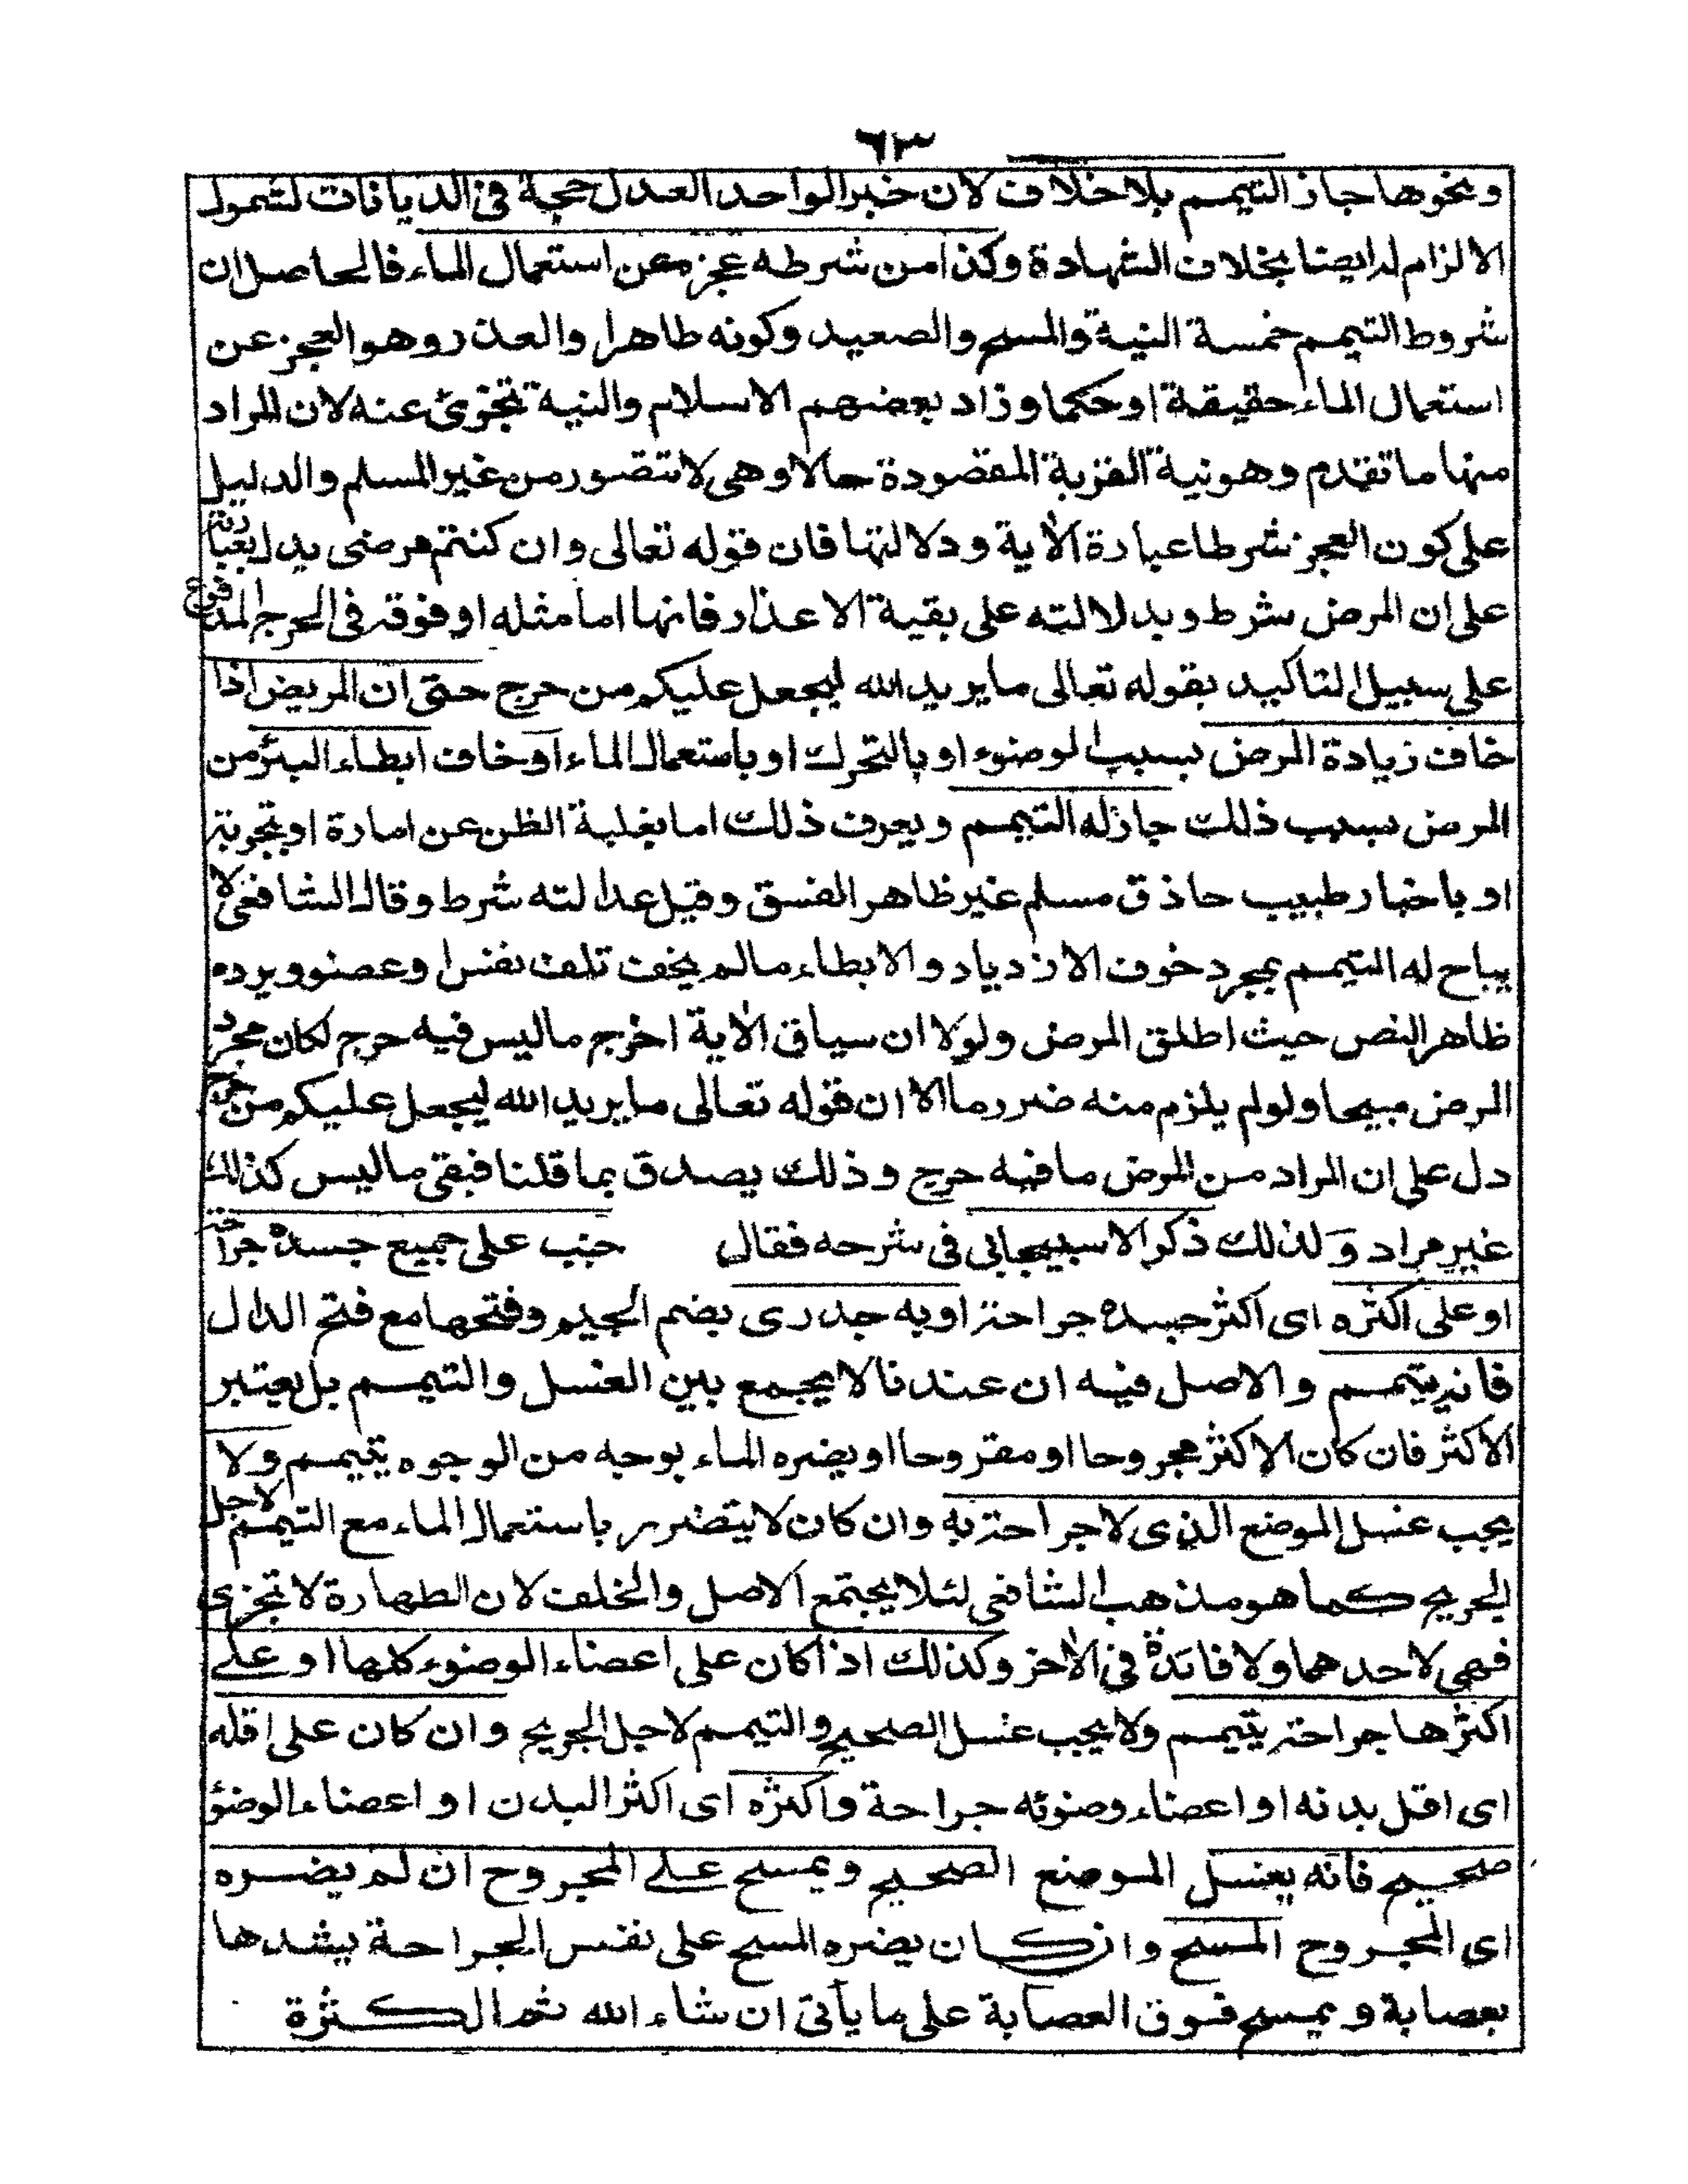 ٦٣
ونحوها جاز التيمم بلا خلاف لان خبر الواحد العدل حجة فى الديانات لشمول
الالزام له ايضا بخلاف الشهادة وكذا من شرطه عجزه عن استعمال الماء فالحاصل ان
شروط التيمم خمسة النية والمسح والصعيد وكونه طاهرا والعذر وهو العجز عن
استعمال الماء حقيقة او حكما وزاد بعضهم الاسلام والنية تجزئ عنه لان المراد
منها ما تقدم وهو نية القربة المقصودة حالا وهى لا تتصور من غير المسلم والدليل
على كون العجز شرطا عبارة الآية ودلالتها فان قوله تعالى وان كنتم مرضى يدل بعبارته
على ان المرض شرط وبدلالته على بقية الاعذار فانها اما مثله او فوقه فى الحرج المدفوع
على سبيل التاكيد بقوله تعالى ما يريد الله ليجعل عليكم من حرج حتى ان المريض اذا
خاف زيادة المرض بسبب الوضوء او بالتحرك او باستعمال الماء او خاف ابطاء البئر من
المرض بسبب ذلك جاز له التيمم ويعرف ذلك اما بغلبة الظن عن امارة او تجربة
او باخبار طبيب حاذق مسلم غير ظاهر الفسق وقيل عدالته شرط وقال الشافعى لا
يباح له التيمم بمجرد خوف الازدياد والابطاء ما لم يخف تلف نفس او عضو ويرده
ظاهر النص حيث اطلق المرض ولولا ان سياق الآية اخرج ما ليس فيه حرج لكان مجرد
المرض مبيحا ولو لم يلزم منه ضرر ما الا ان قوله تعالى ما يريد الله ليجعل عليكم من حرج
دل على ان المراد من المرض ما فيه حرج وذلك يصدق بما قلنا فبقى ما ليس كذلك
غير مراد ولذلك ذكر الاسبيجابى فى شرحه فقال جنب على جميع جسده جراحة
او على اكثره اى اكثر جسده جراحة او به جدرى بضم الجيم وفتحها مع فتح الدال
فانه يتيمم والاصل فيه ان عندنا لا يجمع بين الغسل والتيمم بل يعتبر
الاكثر فان كان الاكثر مجروحا او مقروحا او يضره الماء بوجه من الوجوه يتيمم ولا
يجب غسل الموضع الذى لا جراحة به وان كان لا يتضرر باستعمال الماء مع التيمم لاجل
الجريح كما هو مذهب الشافعى لئلا يجتمع الاصل والخلف لان الطهارة لا تتجزى
فهى لاحدهما ولا فائدة فى الآخر وكذلك اذا كان على اعضاء الوضوء كلها او على
اكثرها جراحة يتيمم ولا يجب غسل الصحيح والتيمم لاجل الجريح وان كان على اقله
اى اقل بدنه او اعضاء وضوئه جراحة واكثره اى اكثر البدن او اعضاء الوضؤ
صحيح فانه يغسل الموضع الصحيح ويمسح على المجروح ان لم يضره
اى المجروح المسح وان كان يضره المسح على نفس الجراحة يشدها
بعصابة ويمسح فوق العصابة على ما يأتى ان شاء الله ثم الكثرة